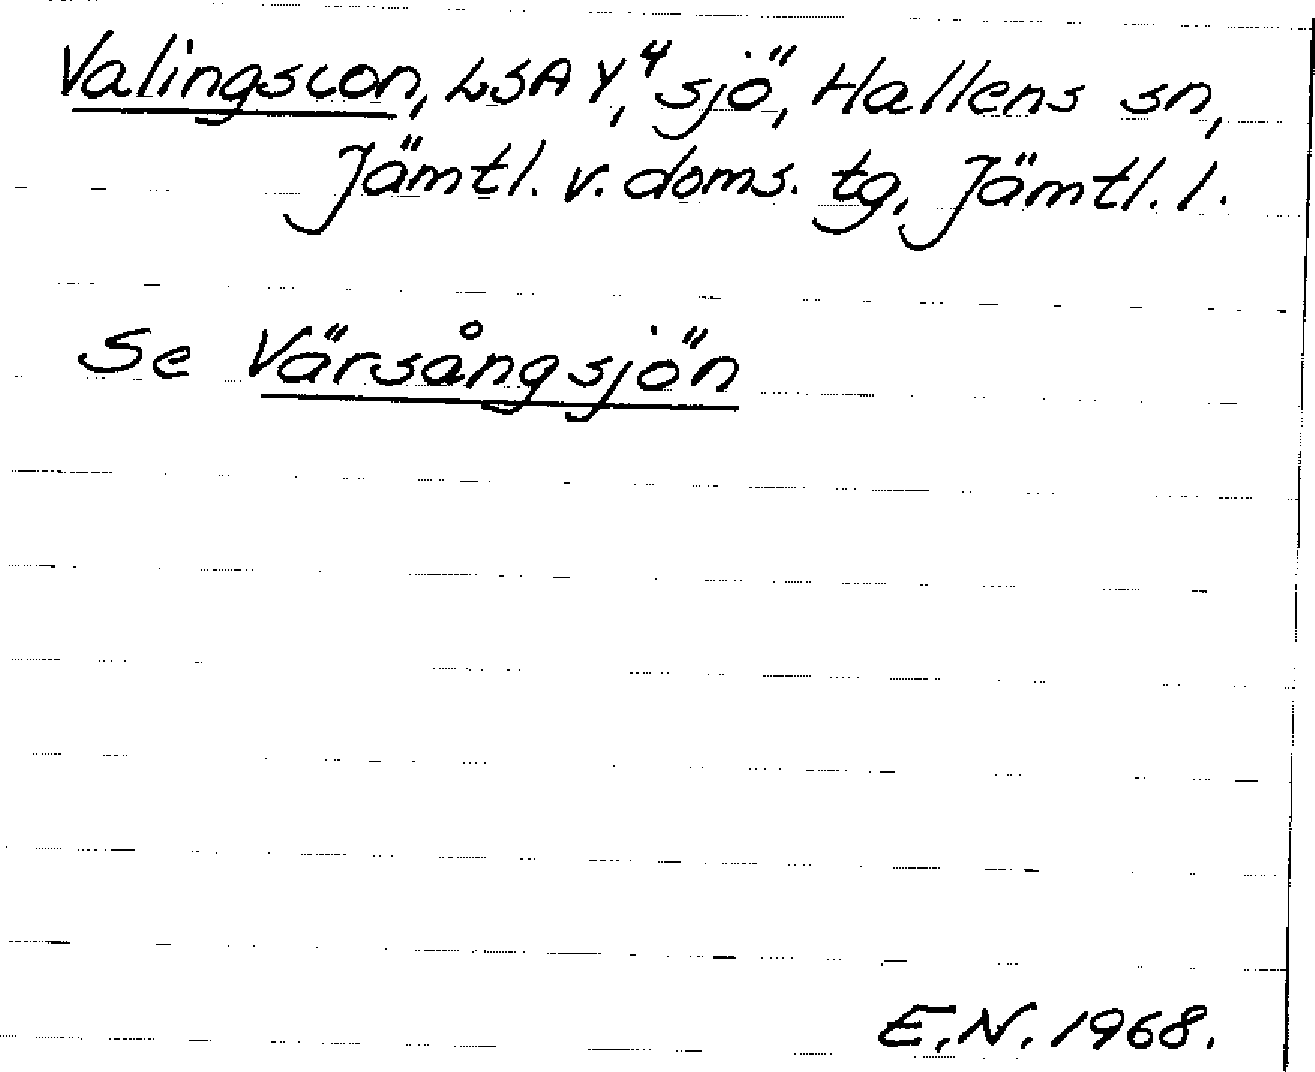 Valingscon, LSA Y,⁴ sjö, Hallens sn,
Jämtl. v. doms. tg, Jämtl. l.
Se Värsångsjön
E.N. 1968.